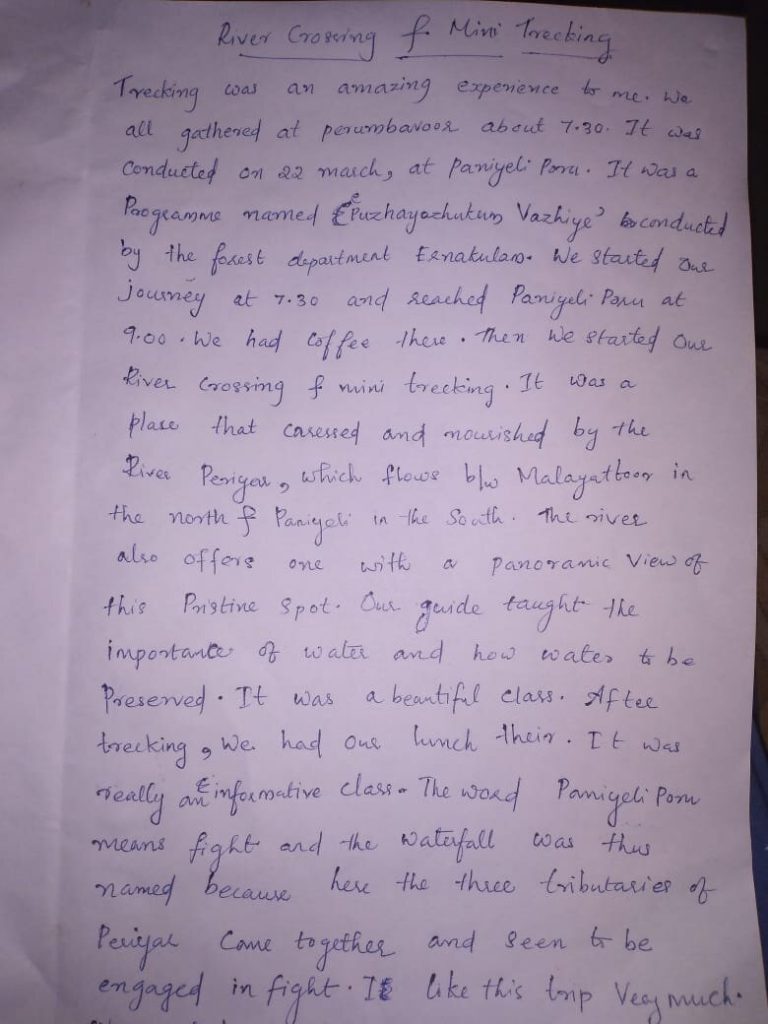 River Crossing & Mini Trecking
Trecking was an amazing experience to me. We
all gathered at perumbavoor about 7.30. It was
Conducted on 22 march, at Paniyeli Poru. It was a
Programme named ‘Puzhayozhukum Vazhiye’ conducted
by the forest department Ernakulam. We started our
journey at 7.30 and reached Paniyeli Poru at
9.00. We had Coffee there. Then we started Our
River Crossing & mini trecking. It was a
place that caressed and nourished by the
River Periyar, which flows b/w Malayattoor in
the north & Paniyeli in the South. The river
also offers one with a panoramic View of
this Pristine Spot. Our guide taught the
importance of water and how water to be
Preserved. It was a beautiful class. After
trecking, we had our lunch their. It was
really an informative class. The word Paniyeli Poru
means fight and the waterfall was thus
named because here the three tributaries of
Periyar Come together and seen to be
engaged in fight. I like this trip Very much.